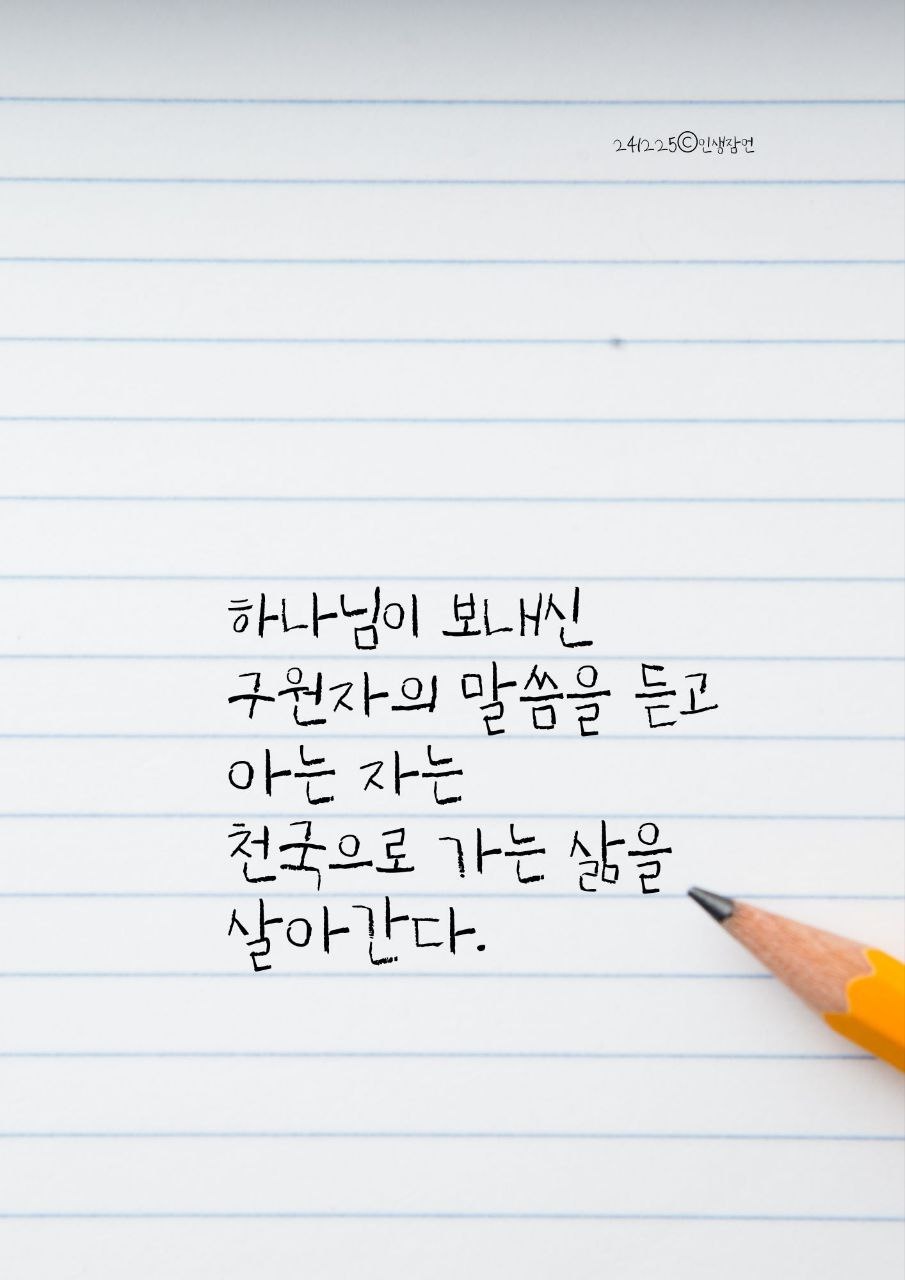 241225©인생잠언
하나님이 보내신
구원자의 말씀을 듣고
아는 자는
천국으로 가는 삶을
살아간다.